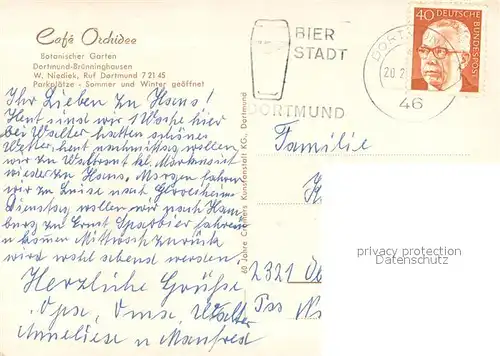 Café Orchidee
Botanischer Garten
Dortmund-Brünninghausen
W. Niediek, Ruf Dortmund 7 21 45
Parkplätze - Sommer und Winter geöffnet
Ihr Lieben zu Haus!
sind wir 1 Woche hier
bei Walter hatten schönes
Wetter, heut nachmittag wollen
wir zu
wieder zu Haus. Morgen fahren
wir zu Luise nach
Dienstag wollen wir nach Ham
burg zu Ernst fahren
u. kommen Mittwoch zurück
wird wohl abend werden
Herzliche Grüße
Opa, Oma, Walter
Anneliese u Manfred
60 Jahre Cramers Kunstanstalt KG., Dortmund
BIER
STADT
DORTMUND
46
40 DEUTSCHE
BUNDESPOST
Familie
2321
privacy protection
Datenschutz